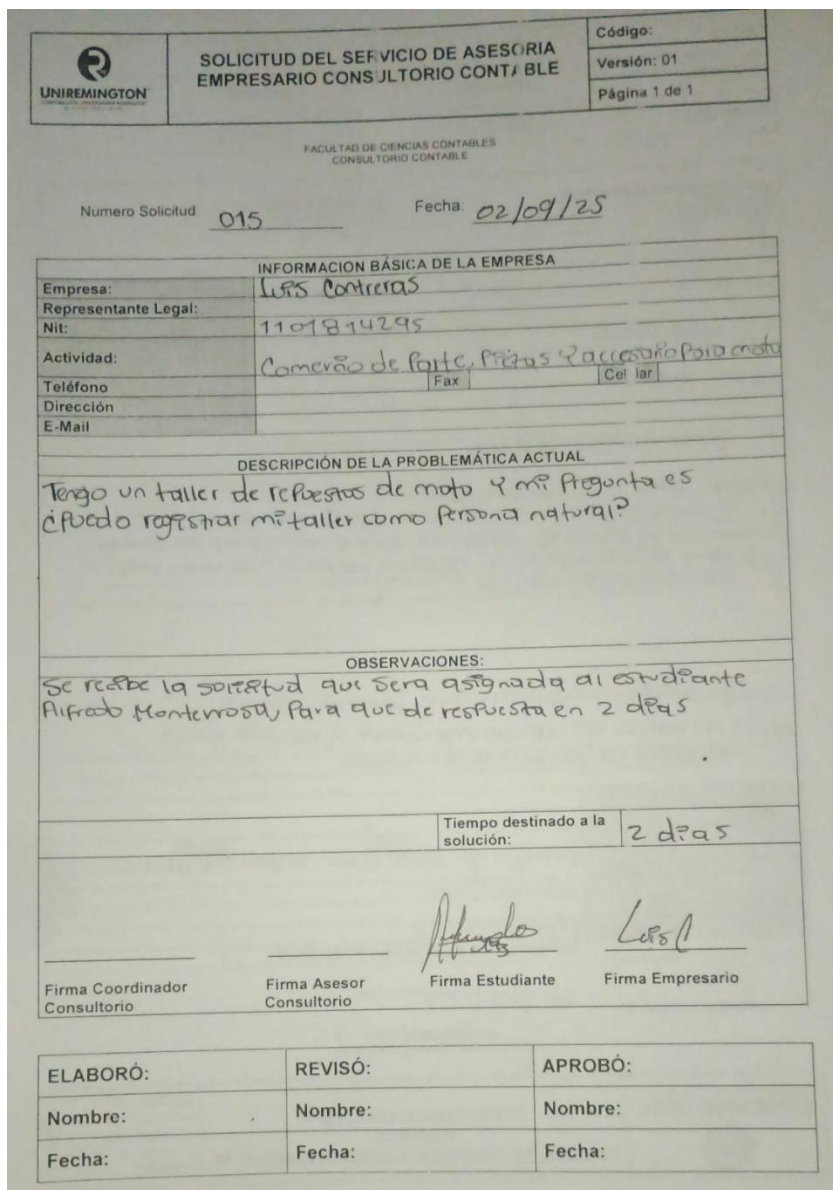 UNIREMINGTON
SOLICITUD DEL SERVICIO DE ASESORIA
EMPRESARIO CONSULTORIO CONTABLE
Código:
Versión: 01
Página 1 de 1
FACULTAD DE CIENCIAS CONTABLES
CONSULTORIO CONTABLE
Numero Solicitud 015
Fecha: 02/09/25
INFORMACION BÁSICA DE LA EMPRESA
Empresa: Luis Contreras
Representante Legal:
Nit: 1101814295
Actividad: Comercio de Parte, Piezas y accesorio Para moto
Teléfono Fax Cel lar
Dirección
E-Mail
DESCRIPCIÓN DE LA PROBLEMÁTICA ACTUAL
Tengo un taller de repuestos de moto y mi Pregunta es
¿Puedo registrar mi taller como Persona natural?
OBSERVACIONES:
Se recibe la solicitud que sera asignada al estudiante
Alfredo Monterrosa, Para que de respuesta en 2 dias
Tiempo destinado a la
solución: 2 dias
Luis C
Firma Coordinador
Consultorio
Firma Asesor
Consultorio
Firma Estudiante
Firma Empresario
ELABORÓ: REVISÓ: APROBÓ:
Nombre: Nombre: Nombre:
Fecha: Fecha: Fecha: